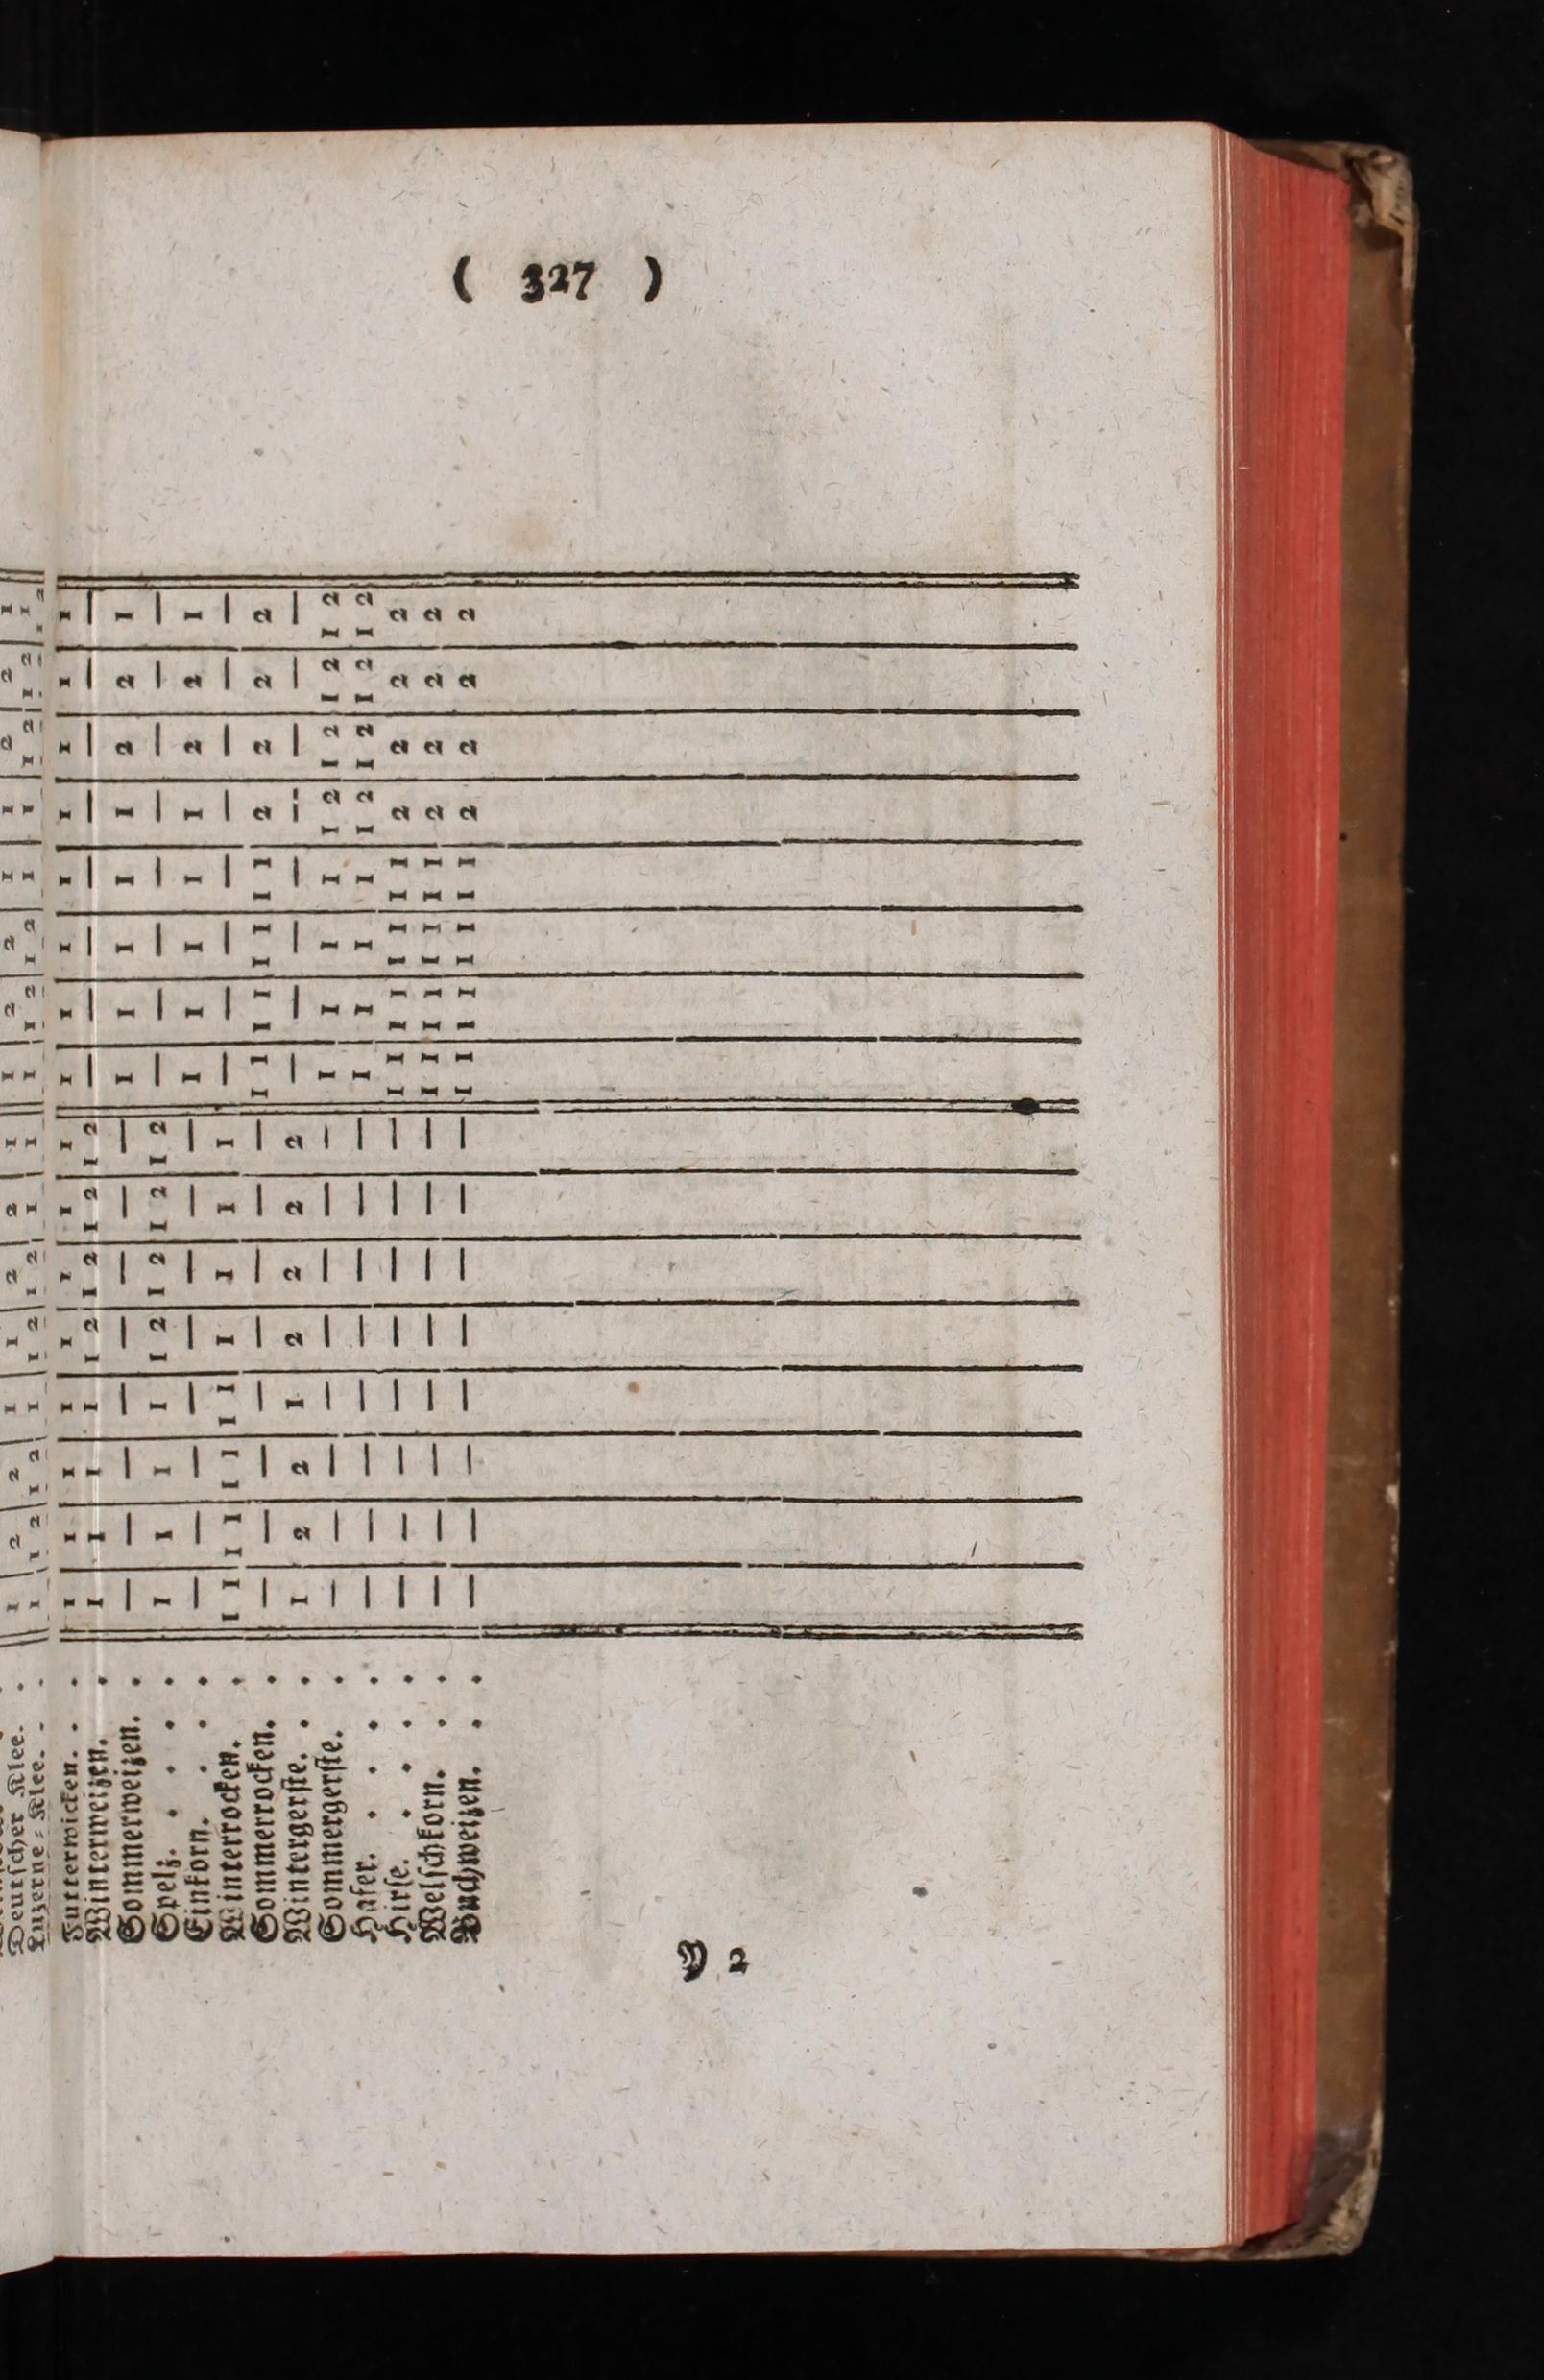 ( 327 )
Deutscher Klee. . 1 2 2 1 1 2 2 1 1 2 2 1 1 2 2 1
Luzerne-Klee. . . 1 1 2 1 2 1 1 2 1 2 1 1 1 1 2 1 2 1 1 1 2 1 2 1
Futterwicken. . . 1 1 1 1 1 1 1 1 1 1 1 1 1 1 1 1
Winterweizen. . 1 1 1 1 1 2 1 2 1 2 1 2 — — — — — — — —
Sommerweizen. . — — — — — — — — 1 1 1 1 1 2 2 1
Spelz. . . . . 1 1 1 1 1 2 1 2 1 2 1 2 — — — — — — — —
Einkorn. . . . — — — — — — — — 1 1 1 1 1 2 2 1
Winterrocken. . 1 1 1 1 1 1 1 1 1 1 1 1 — — — — — — — —
Sommerrocken. . — — — — — — — — 1 1 1 1 1 1 1 1 2 2 2 2
Wintergerste. . . 1 2 2 1 2 2 2 2 — — — — — — — —
Sommergerste. . — — — — — — — — 1 1 1 1 1 2 1 2 1 2 1 2
Hafer. . . . . — — — — — — — — 1 1 1 1 1 2 1 2 1 2 1 2
Hirse. . . . . — — — — — — — — 1 1 1 1 1 1 1 1 2 2 2 2
Welschkorn. . . — — — — — — — — 1 1 1 1 1 1 1 1 2 2 2 2
Buchweizen. . . — — — — — — — — 1 1 1 1 1 1 1 1 2 2 2 2
Y 2